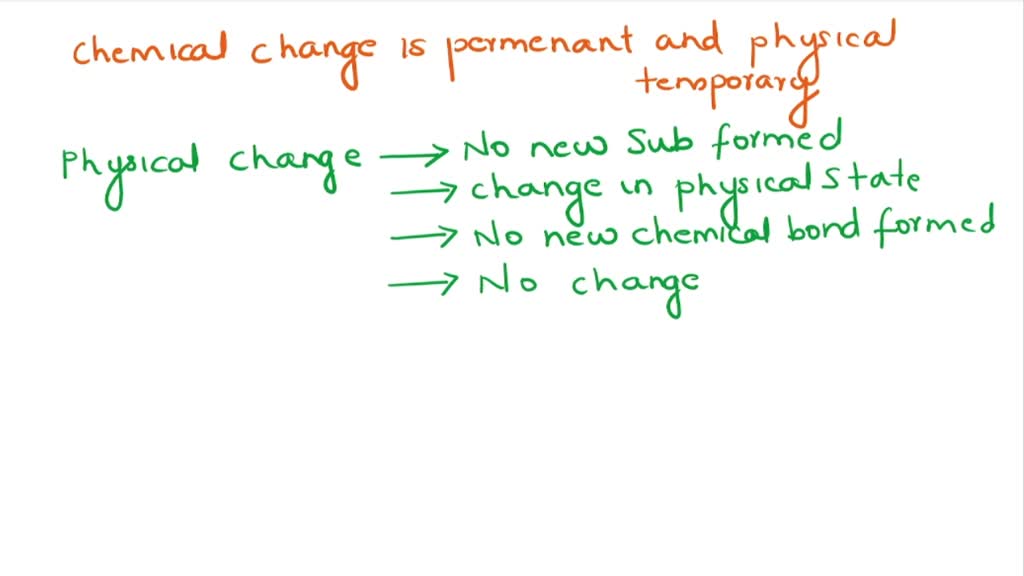 Chemical change is permenant and physical
temporary
Physical change → No new Sub formed
→ change in physical state
→ No new chemical bond formed
→ No change